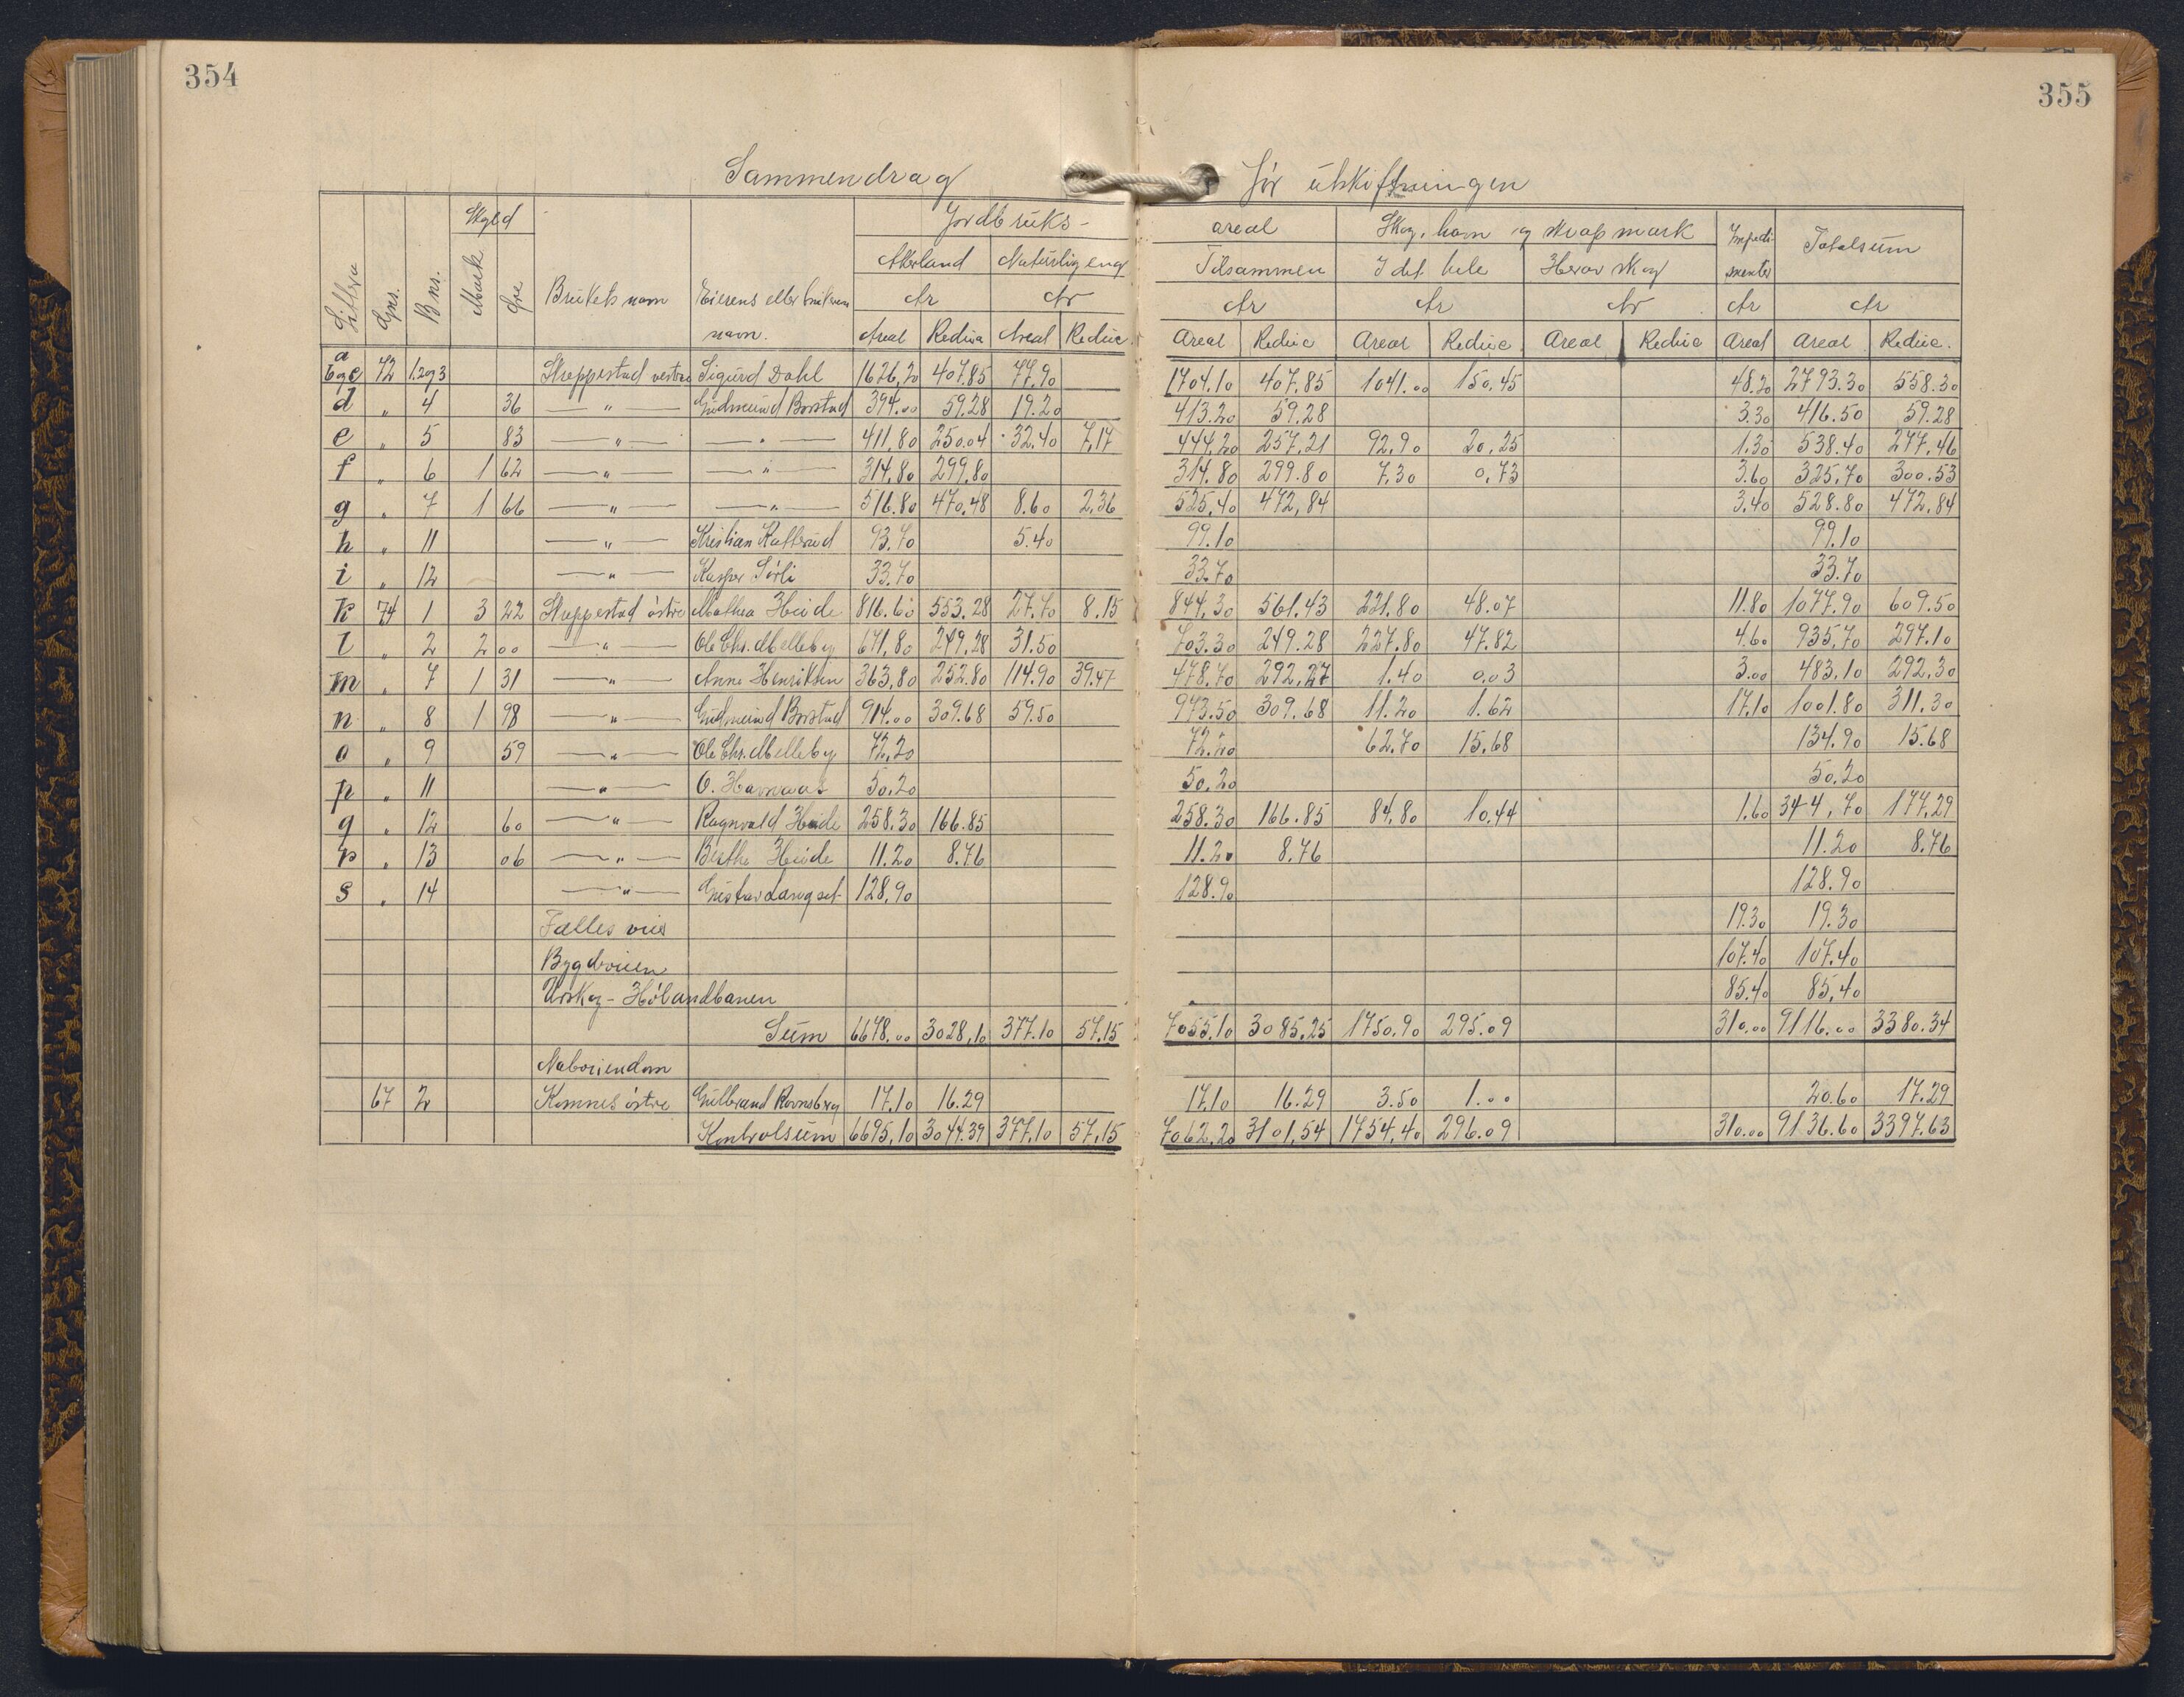 354
355
Sammendrag før utskiftningen
Litbra Gnr. B nr. Skyld Mark Øre Brukets navn Eierens eller brukerens navn. Jordbruks- areal Skog, havn og skrapmark Impedimenter Totalsum
Akerland Naturlig eng Tilsammen I det hele Herav skog
Ar Ar Ar Ar Ar Ar Ar
Areal Reduc Areal Reduc. Areal Reduc Areal Reduc Areal Reduc Areal Areal Reduc.
a b og c 72 1.2 og 3 Skeppestad vestre Sigurd Dahl 1626,20 407.85 77.90 1704.10 407.85 1041.00 150.45 48.20 2793.30 558.30
d " 4 36 — " — Gudmund Borstad 394.00 59.28 19.20 413.20 59.28 3.30 416.50 59.28
e " 5 83 — " — — " — 411,80 250.04 32.40 7,17 444,20 257,21 92,90 20,25 1.30 538.40 277.46
f " 6 1 62 — " — — " — 314,80 299,80 314.80 299.80 7,30 0,73 3.60 325,70 300.53
g " 7 1 66 — " — — " — 516.80 470,48 8.60 2,36 525,40 472,84 3,40 528.80 472,84
h " 11 — " — Kristian Kallerud 93.70 5.40 99.10 99.10
i " 12 — " — Kasper Sørli 33.70 33.70 33.70
k 74 1 3 22 Skeppestad østre Mathea Heide 816.60 553.28 27.70 8.15 844,30 561.43 221.80 48.07 11.80 1077.90 609.50
l " 2 2 00 — " — Ole Chr. Melleby 671,80 249,28 31.50 703.30 249.28 227.80 47.82 4.60 935,70 297.10
m " 7 1 31 — " — Anne Henriksen 363,80 252.80 114.90 39.47 478.70 292,27 1.40 0.03 3.00 483,10 292,30
n " 8 1 98 — " — Gudmund Borstad 914.00 309.68 59.50 973.50 309.68 11.20 1.62 17.10 1001.80 311.30
o " 9 59 — " — Ole Chr. Melleby 72,20 72.20 62.70 15,68 134.90 15.68
p " 11 — " — O. 50.20 50,20 50.20
q " 12 60 — " — Ragnvald Heide 258.30 166.85 258.30 166.85 84,80 10,44 1.60 344,70 177,29
r " 13 06 — " — Berthe Heide 11.20 8.76 11.20 8,76 11.20 8.76
s " 14 — " — Gustav Langset 128,90 128.90 128.90
Fælles veier 19.30 19.30
Bygdeveien 107.40 107.40
Urskog-Hølandbanen 85.40 85,40
Sum 6678.00 3028,10 377.10 57,15 7055,10 3085,25 1750.90 295.09 310.00 9116.00 3380.34
Naboeiendom
67 2 Komnes østre Gulbrand Ravnsberg 17.10 16.29 17.10 16.29 3.50 1.00 20.60 17.29
Kontrolsum 6695,10 3044.39 377,10 57,15 7062,20 3101,54 1754,40 296.09 310.00 9136.60 3397.63